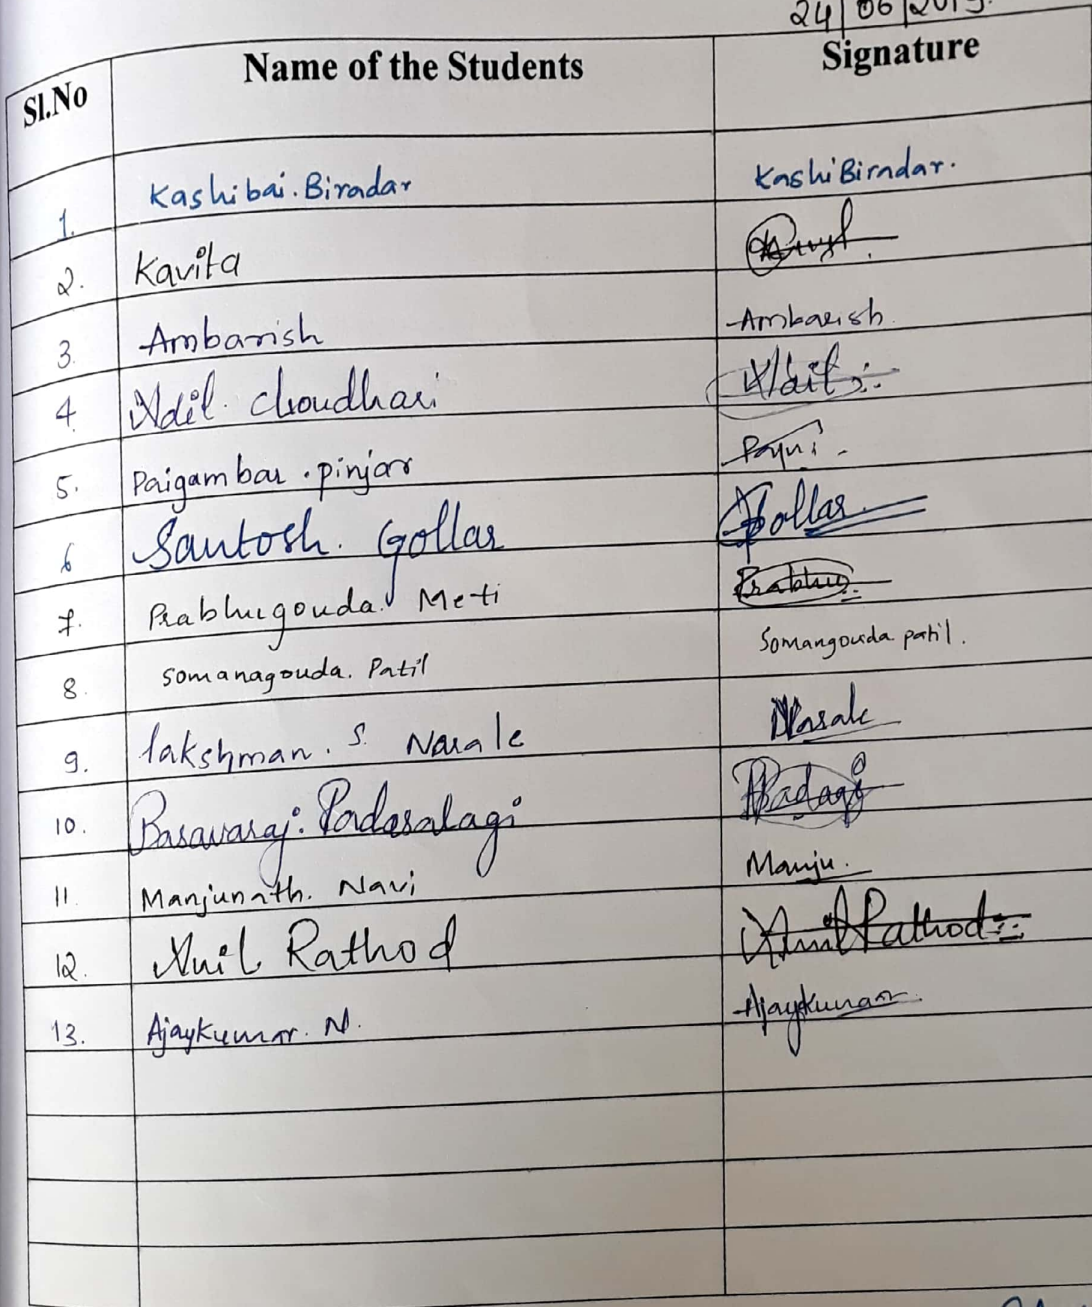 24/06/2019.
Sl.No Name of the Students Signature
1. Kashibai. Biradar Kashi Biradar.
2. Kavita
3. Ambarish Ambarish
4 Adil. Choudhari
5. Paigambar. pinjar
6 Santosh. Gollar Gollar
7. Prabhugouda. Meti Prabhu
8. Somanagouda. Patil Somangouda patil.
9. lakshman. S. Narale Narale
10. Basavaraj. Padasalagi
11. Manjunath. Navi Manju.
12. Anil Rathod Anil Rathod
13. Ajaykumar. N. Ajaykumar.